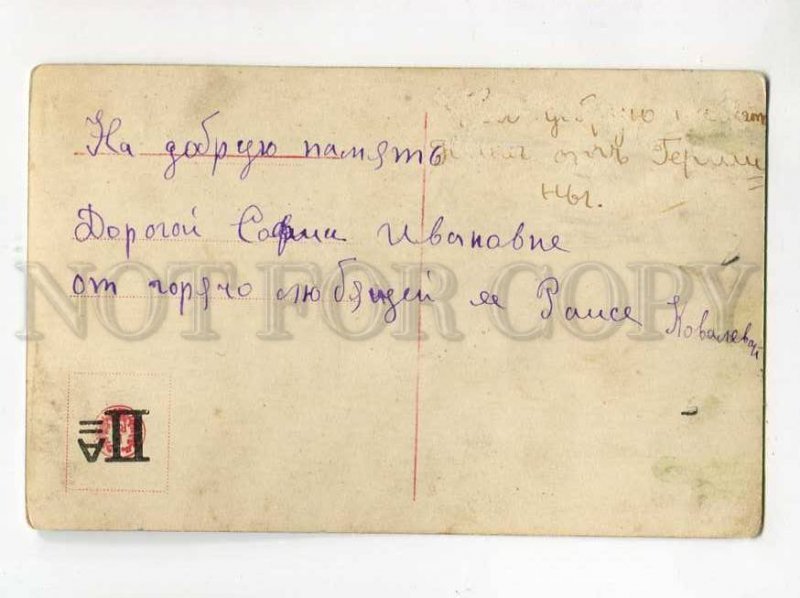 На добрую память
Дорогой Софии Ивановне
от горячо любящей ея Раисе Ковалевой
добрую
отъ Герми
ны.
NOT FOR COPY